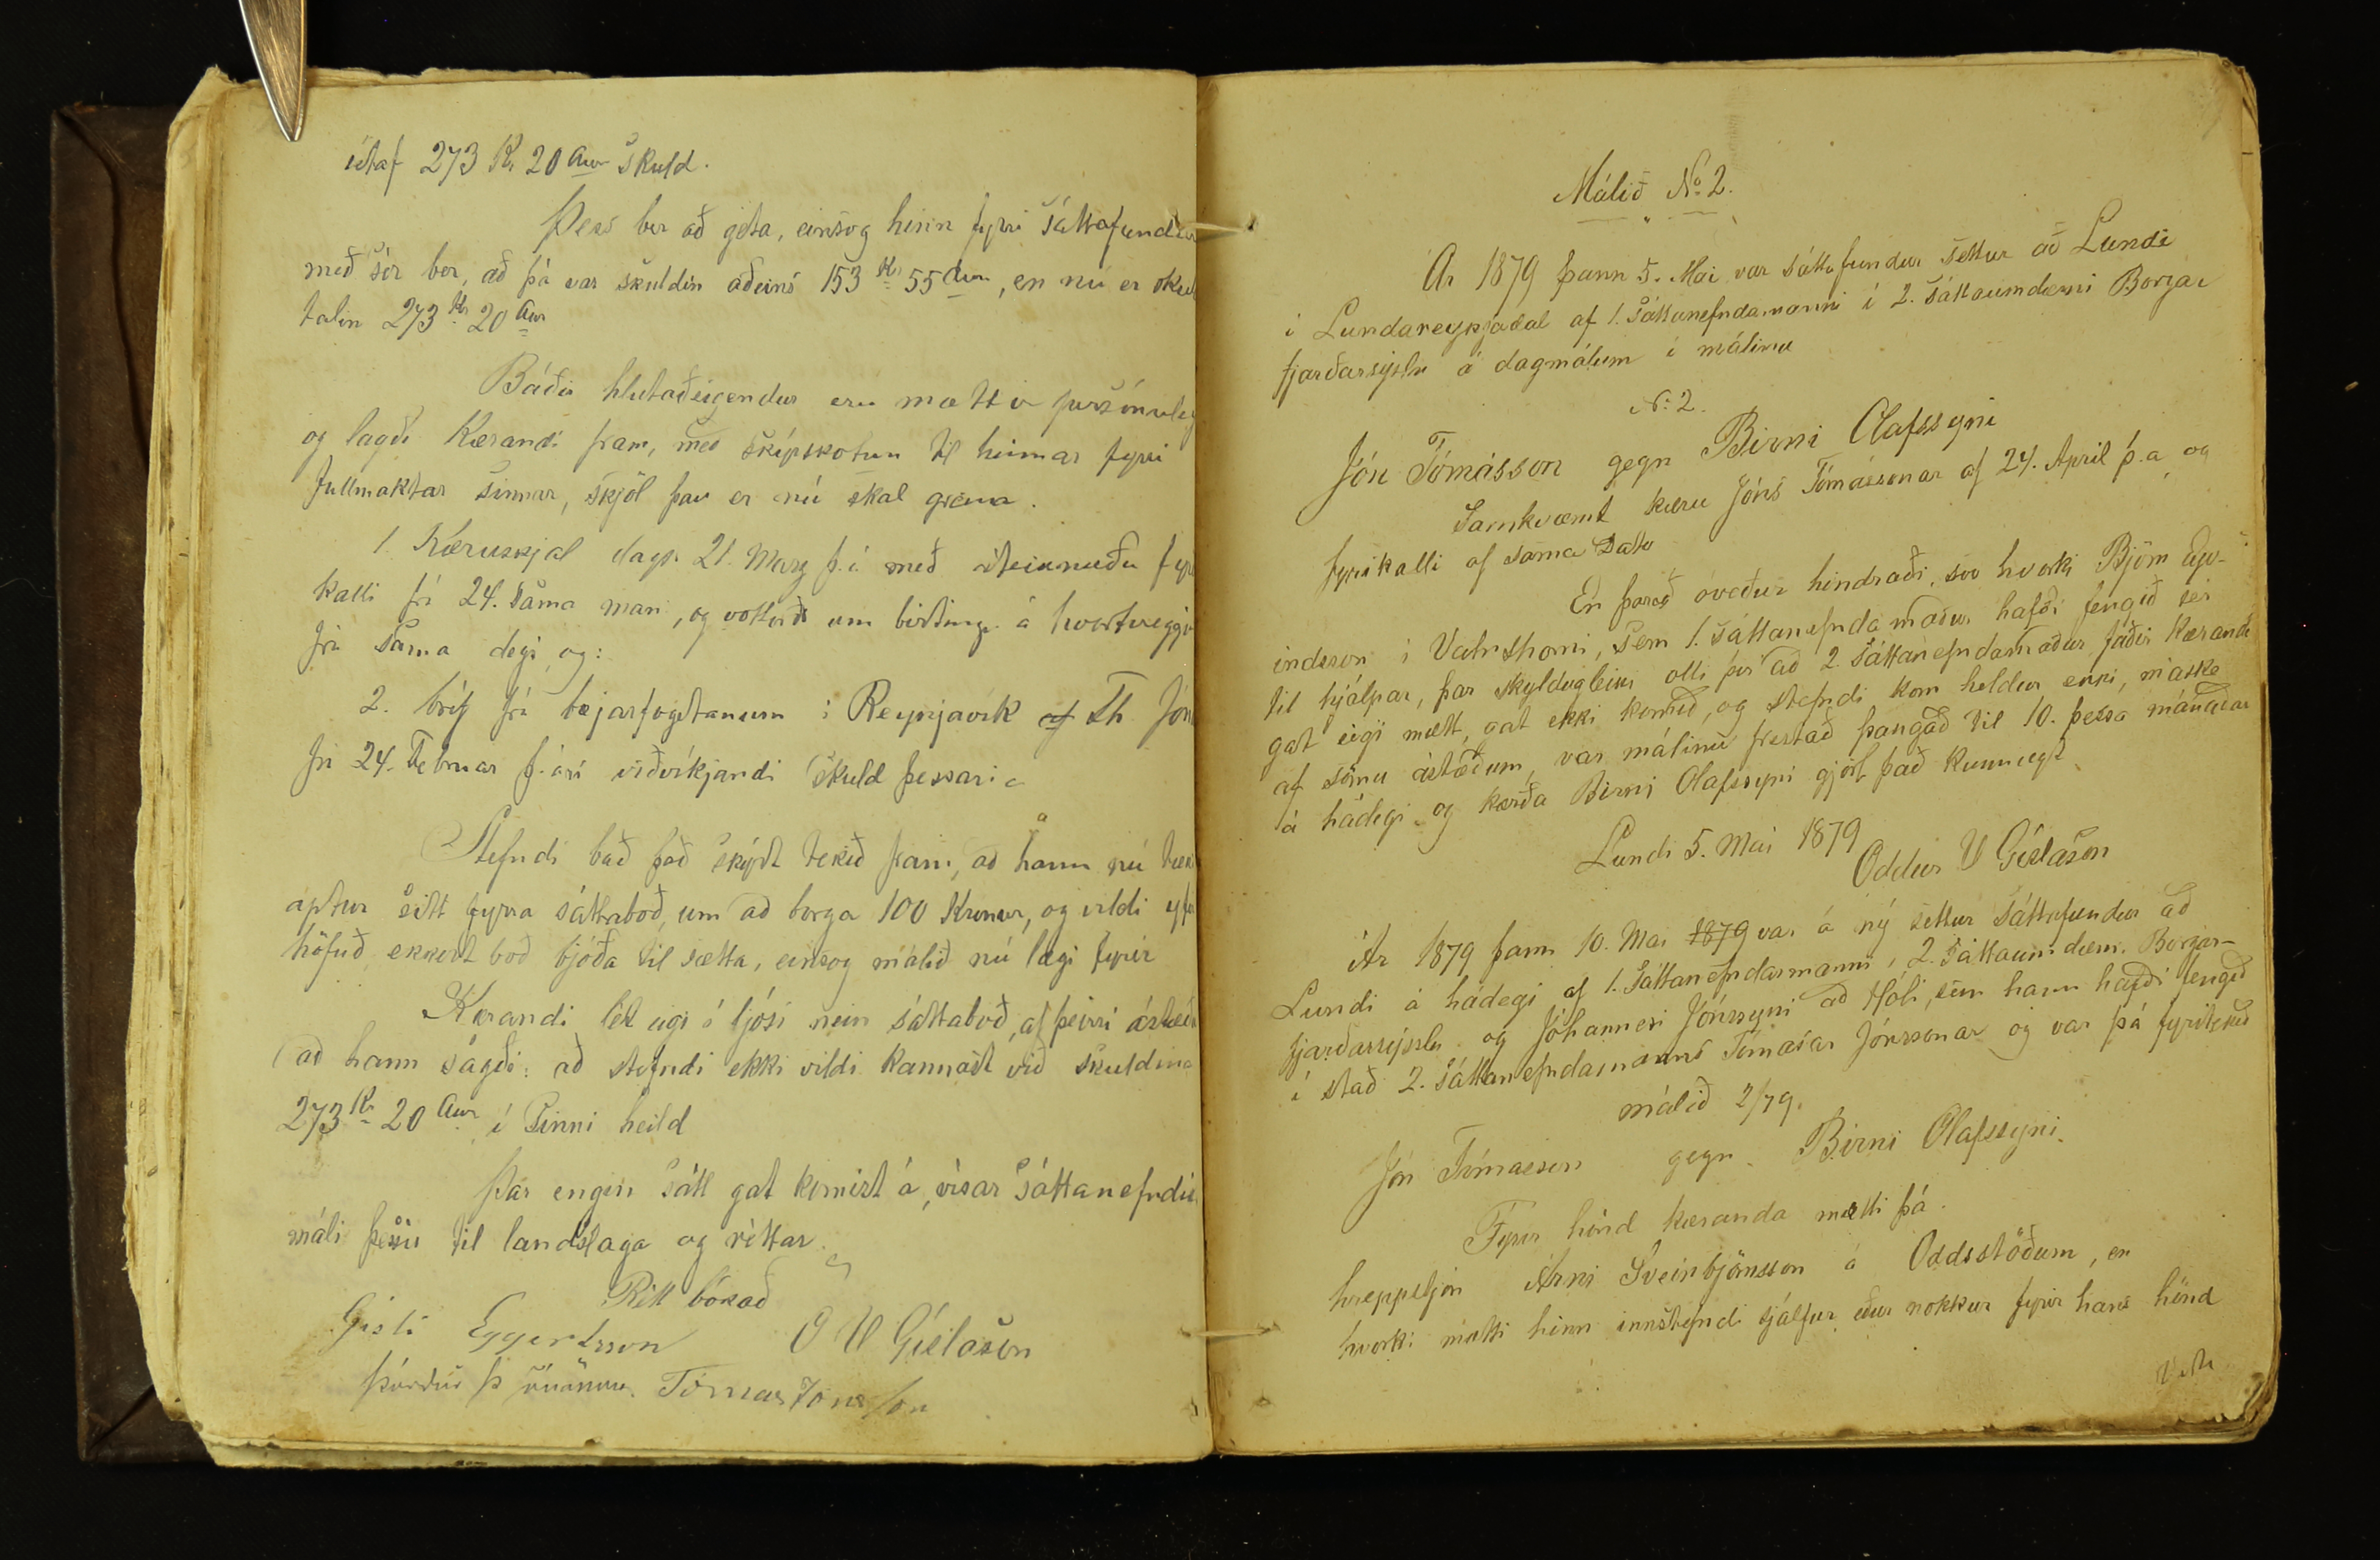 útaf 273 Kr 20 Aur skuld.
Þess ber að geta, einsog hinn fyrri sáttafundur
með sér ber, að þá var skuldin aðeins 153 Kr 55 Aur, en nú er
talin 273 Kr 20 Aur
Báðir hlutaðeigendur eru mættir
og lagði Kærandi fram, með skýrskotun til hinnar fyrri
fullmaktar sinnar, skjöl þau er nú skal greina.
1. Kæruskjal dags. 21. Marz þ.á með
kalli frá 24. sama mán, og vottorði um birtingu á hvortveggju
frá sama degi og:
2. bréf frá bæjarfógetanum í Reykjavík af Th Jón
frá 24. Febrúar þ. ári viðvíkjandi skuld þessari
Stefndi bað það skýrt tekið fram, að hann nú
aptur sitt fyrra sáttaboð, um að borga 100 Kronur, og vildi
höfuð ekkert boð bjóða til sætta, einsog málið nú lægi fyrir
Kærandi lét eigi í ljósi nein sáttaboð, af þeirri ástæðu
að hann sagði: að stefndi ekki vildi kannast við skuldina
273 Kr 20 Aur í sinni heild
Þar engin sátt gat komist á, vísar sáttanefndin
máli þessu til landslaga og réttar
Rétt bókað
Gísli Eggertsson O V Gíslason
Þórður Þ Tómas Jónsson
Málið No 2.
Ár 1879 þann 5. Mai var sáttafundur settur að Lundi
í Lundareykjadal af 1. Sáttanefndamanni í 2. sáttaumdæmi Borgar
fjarðarsýslu á dagmálum í málinu
No 2.
Jón Tómásson gegn Birni Olafssyni
Samkvæmt kæru Jóns Tómássonar af 24. April þ.a og
fyrikalli af sama Dato
En þareð óveður hindraði, svo hvorki Björn Eyv-
indsson í Vatnshorni, sem 1. sáttanefndamaður hafði fengið sér
til hjálpar, þar skyldugleiki olli því að 2. sáttanefndamaður faðir Kæranda
gat eigi mætt, gat ekki komið, og stefndi kom heldur ekki, máske
af sömu ástæðum, var málinu frestað þangað til 10. þessa mánaðar
á hádegi og Birni Olafssyni gjört það kunnugt
Lundi 5. Mai 1879
Oddur V Gíslason
Ár 1879 þann 10. Mai 1879 var á ný settur sáttafundur að
Lundi á hádegi af 1. Sáttanefndarmanni í 2. sáttaumdæm. Borgar-
fjarðarsýslu og Jóhannesi Jónssyni að Hóli, sem hann hafði fengið
í stað 2. sáttanefndamanns Tómásar Jónssonar og var þá fyritekið
málið 2/79.
Jón Tómasson gegn Birni Olafssyni.
Fyrir hönd kæranda mætti þá
hreppstjóri Árni Sveinbjörnsson á Oddsstöðum, en
hvorki mætti hinn innstefndi sjálfur eður nokkur fyrir hans hönd